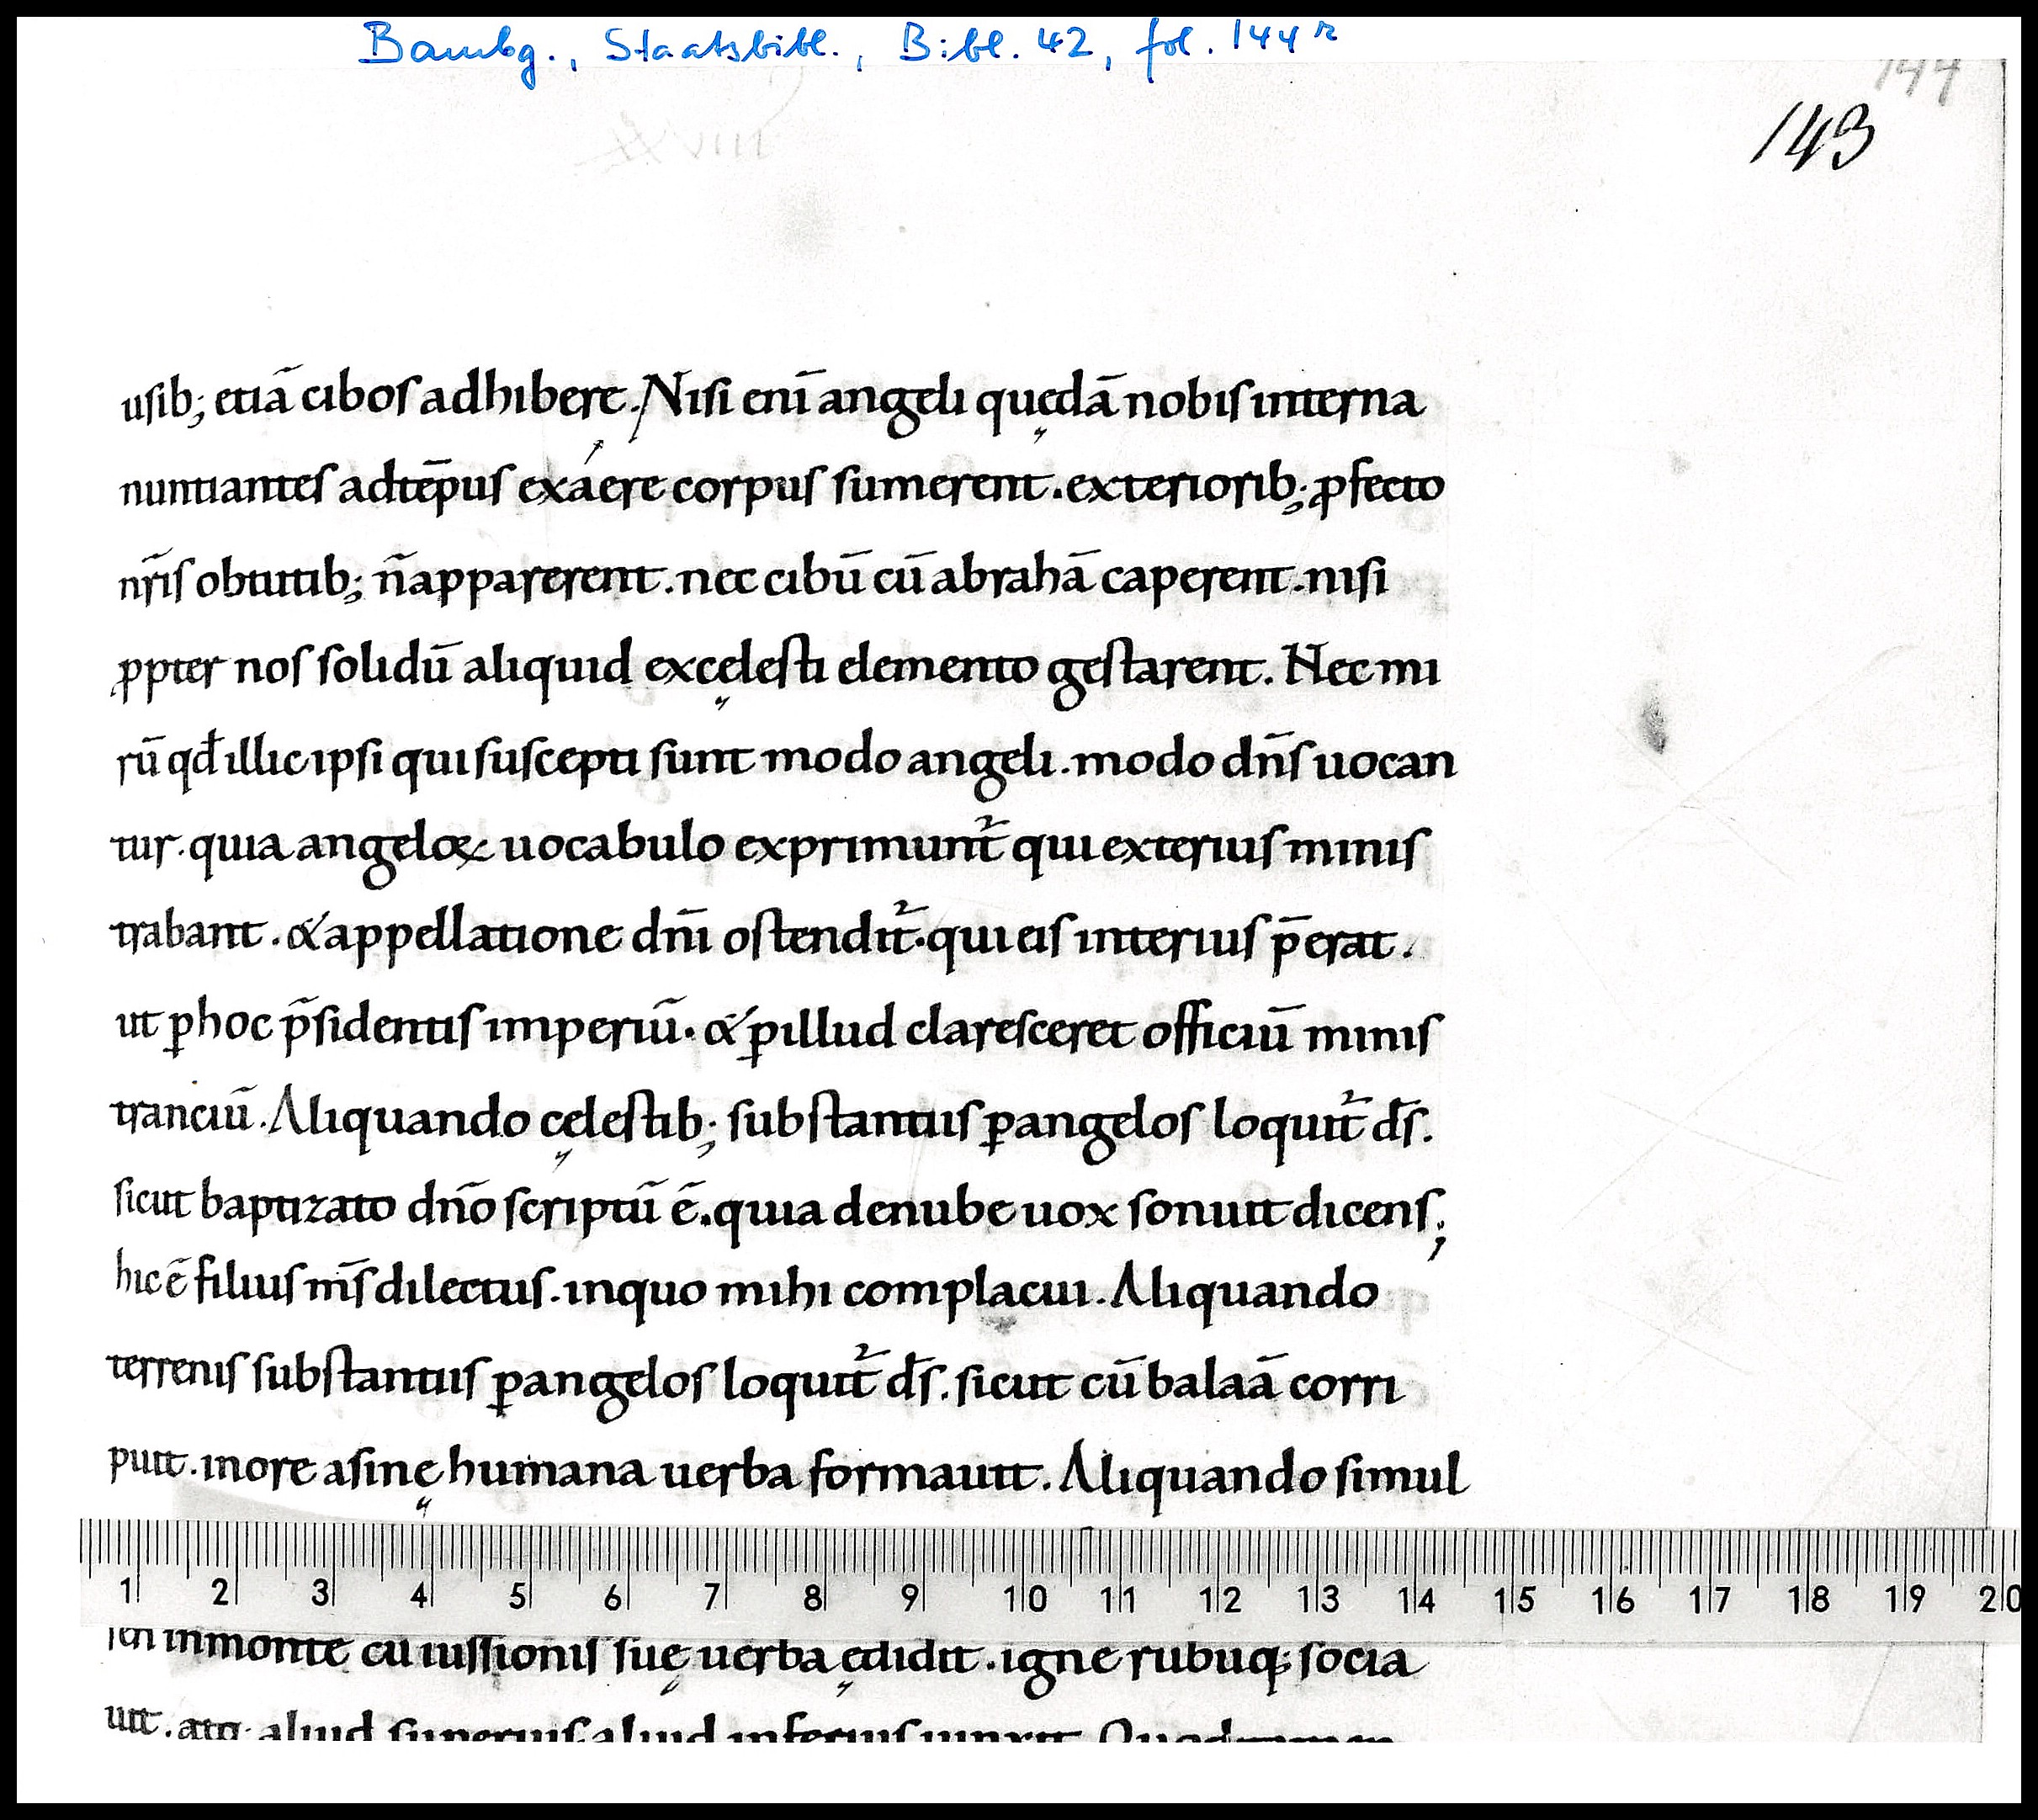 Bambg., Staatsbibl., Bibl. 42, fol. 144r
144
143
usib; etiā cibos adhibere. Nisi enī angeli quędā nobis interna
nuntiantes ad tēpus ex aere corpus sumerent. exteriorib; ꝓfecto
nr̄is obtutib; n̄ apparerent. nec cibū cū abrahā caperent. nisi
ꝓpter nos solidū aliquid ex cęlesti elemento gestarent. Nec mi
rū qđ illic ipsi qui suscepti sunt modo angeli. modo dn̄s uocan
tur. quia angeloꝝ uocabulo exprimunt̄² qui exterius minis
trabant. & appellatione dn̄i ostendit̄². qui eis interius p̄erat.
ut ꝑ hoc p̄sidentis imperiū. & ꝑ illud claresceret officiū minis
tranciū. Aliquando cęlestib; substantiis ꝑ angelos loquit̄² ds̄.
sicut baptizato dn̄o scriptū ē. quia de nube uox sonuit dicens;
hic ē filius ms̄ dilectus. in quo mihi complacui. Aliquando
terrenis substantiis ꝑ angelos loquit̄² ds̄. sicut cū balaā corri
puit. in ore asinę humana uerba formauit. Aliquando simul
1 2 3 4 5 6 7 8 9 10 11 12 13 14 15 16 17 18 19 20
in monte cū iussionis suę uerba ędidit. igne rubūq; socia
uit. atq; aliud superius aliud inferius iunxit.